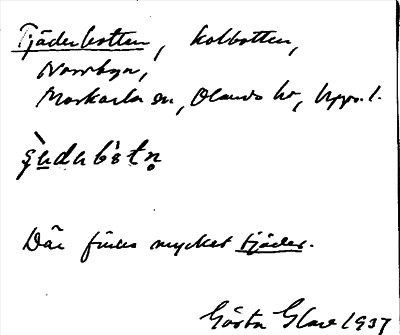 Tjäderbotten, kolbotten,
Norrbyn,
Morkarla sn, Olands hd, Upps. l.
Där finns mycket tjäder.
Gösta Glave 1937